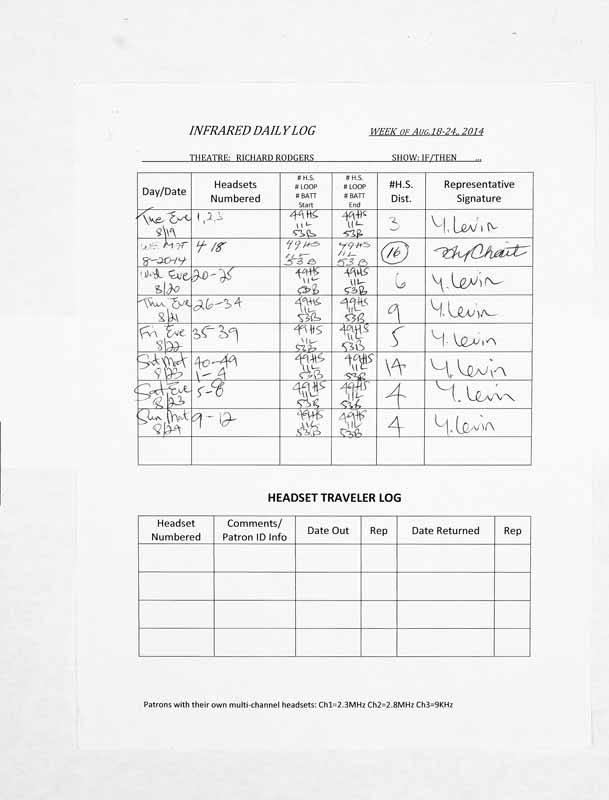 INFRARED DAILY LOG WEEK OF AUG.18-24,, 2014
THEATRE: RICHARD RODGERS SHOW: IF/THEN ...
Day/Date Headsets Numbered # H.S. # LOOP # BATT Start # H.S. # LOOP # BATT End #H.S. Dist. Representative Signature
Tue Eve 8/19 1,2,3 49HS 11L 53B 49HS 11L 53B 3 Y. Levin
WE. MAT 8-20-14 4-18 49HS 11L 53B 49HS 11L 53B 16
Wed Eve 8/20 20-25 49HS 11L 53B 49HS 11L 53B 6 Y. Levin
Thu Eve 8/21 26-34 49HS 11L 53B 49HS 11L 53B 9 Y. Levin
Fri Eve 8/22 35-39 49HS 11L 53B 49HS 11L 53B 5 Y. Levin
Sat Mat 8/23 40-49 1-4 49HS 11L 53B 49HS 11L 53B 14 Y. Levin
Sat Eve 8/23 5-8 49HS 11L 53B 49HS 11L 53B 4 Y. Levin
Sun Mat 8/24 9-12 49HS 11L 53B 49HS 11L 53B 4 Y. Levin
HEADSET TRAVELER LOG
Headset Numbered Comments/ Patron ID Info Date Out Rep Date Returned Rep
Patrons with their own multi-channel headsets: Ch1=2.3MHz Ch2=2.8MHz Ch3=9KHz